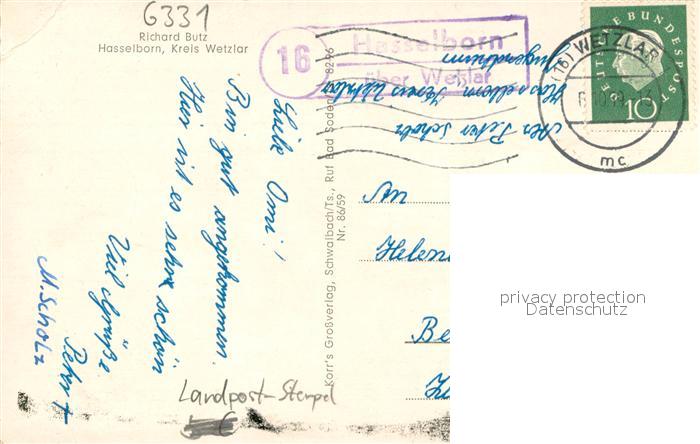 6331
Richard Butz
Hasselborn, Kreis Wetzlar
16
Hasselborn
über Wetzlar
(16) WETZLAR
mc
DEUTSCHE BUNDESPOST
10
Abs Peter Scholz
Hasselborn Kreis Wetzlar
Jugendheim
Liebe Omi!
Bin gut angekommen.
Hier ist es sehr schön
Viel Grüße
Peter +
M. Scholz
Korr's Großverlag, Schwalbach/Ts., Ruf Bad Soden 8296
Nr. 86/59
An
Helen
Be
privacy protection
Datenschutz
Landpost-Stempel